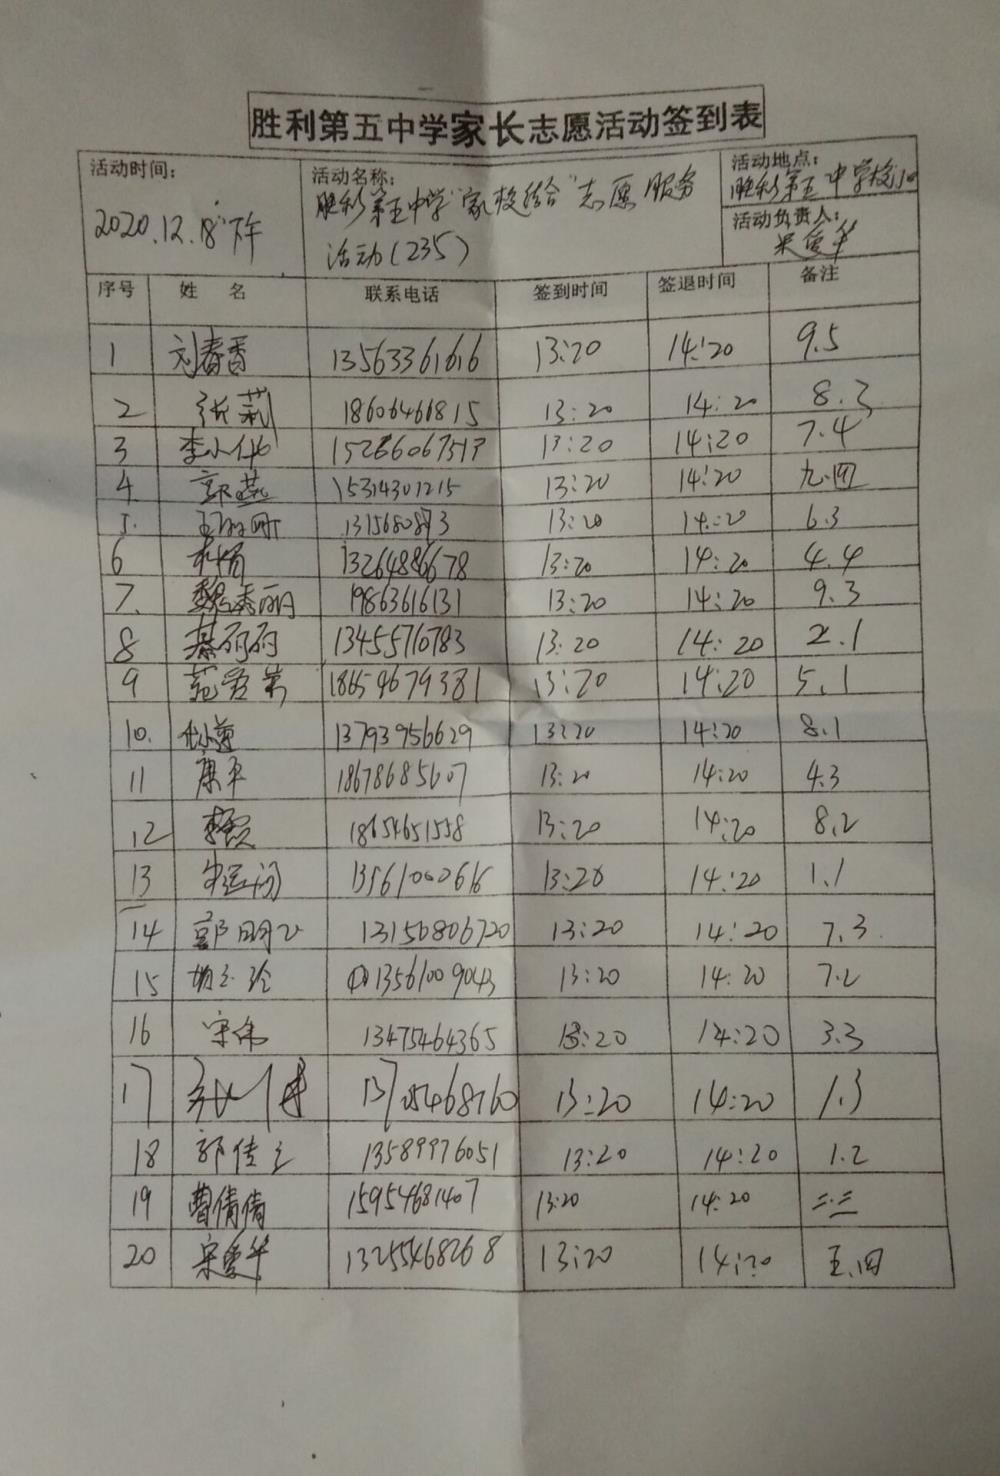 胜利第五中学家长志愿活动签到表
活动时间: 活动名称: 活动地点:
2020.12.18下午 胜利第五中学"家校结合"志愿服务 胜利第五中学校门口
活动(235) 活动负责人:
宋爱华
序号 姓名 联系电话 签到时间 签退时间 备注
1 刘春香 13563361616 13:20 14:20 9.5
2 张莉 18606466815 13:20 14:20 8.3
3 李小 13:20 14:20 7.4
4 郭燕 15314301215 13:20 14:20 九.四
5. 13:20 14:20 6.3
6 13264886678 13:20 14:20 4.4
7. 魏秀丽 19863616131 13:20 14:20 9.3
8 綦丽丽 13455710783 13:20 14:20 2.1
9 18654679381 13:20 14:20 5.1
10. 13793956629 13:20 14:20 8.1
11 康平 18678685607 13:20 14:20 4.3
12 18654651558 13:20 14:20 8.2
13 13561000616 13:20 14:20 1.1
14 郭明 13150806720 13:20 14:20 7.3
15 13561009043 13:20 14:20 7.2
16 宋伟 13475464365 13:20 14:20 3.3
17 13705468760 13:20 14:20 1.3
18 郭佳 13589976051 13:20 14:20 1.2
19 曹倩倩 15954681407 13:20 14:20 三.三
20 宋爱华 13255468268 13:20 14:20 五.四